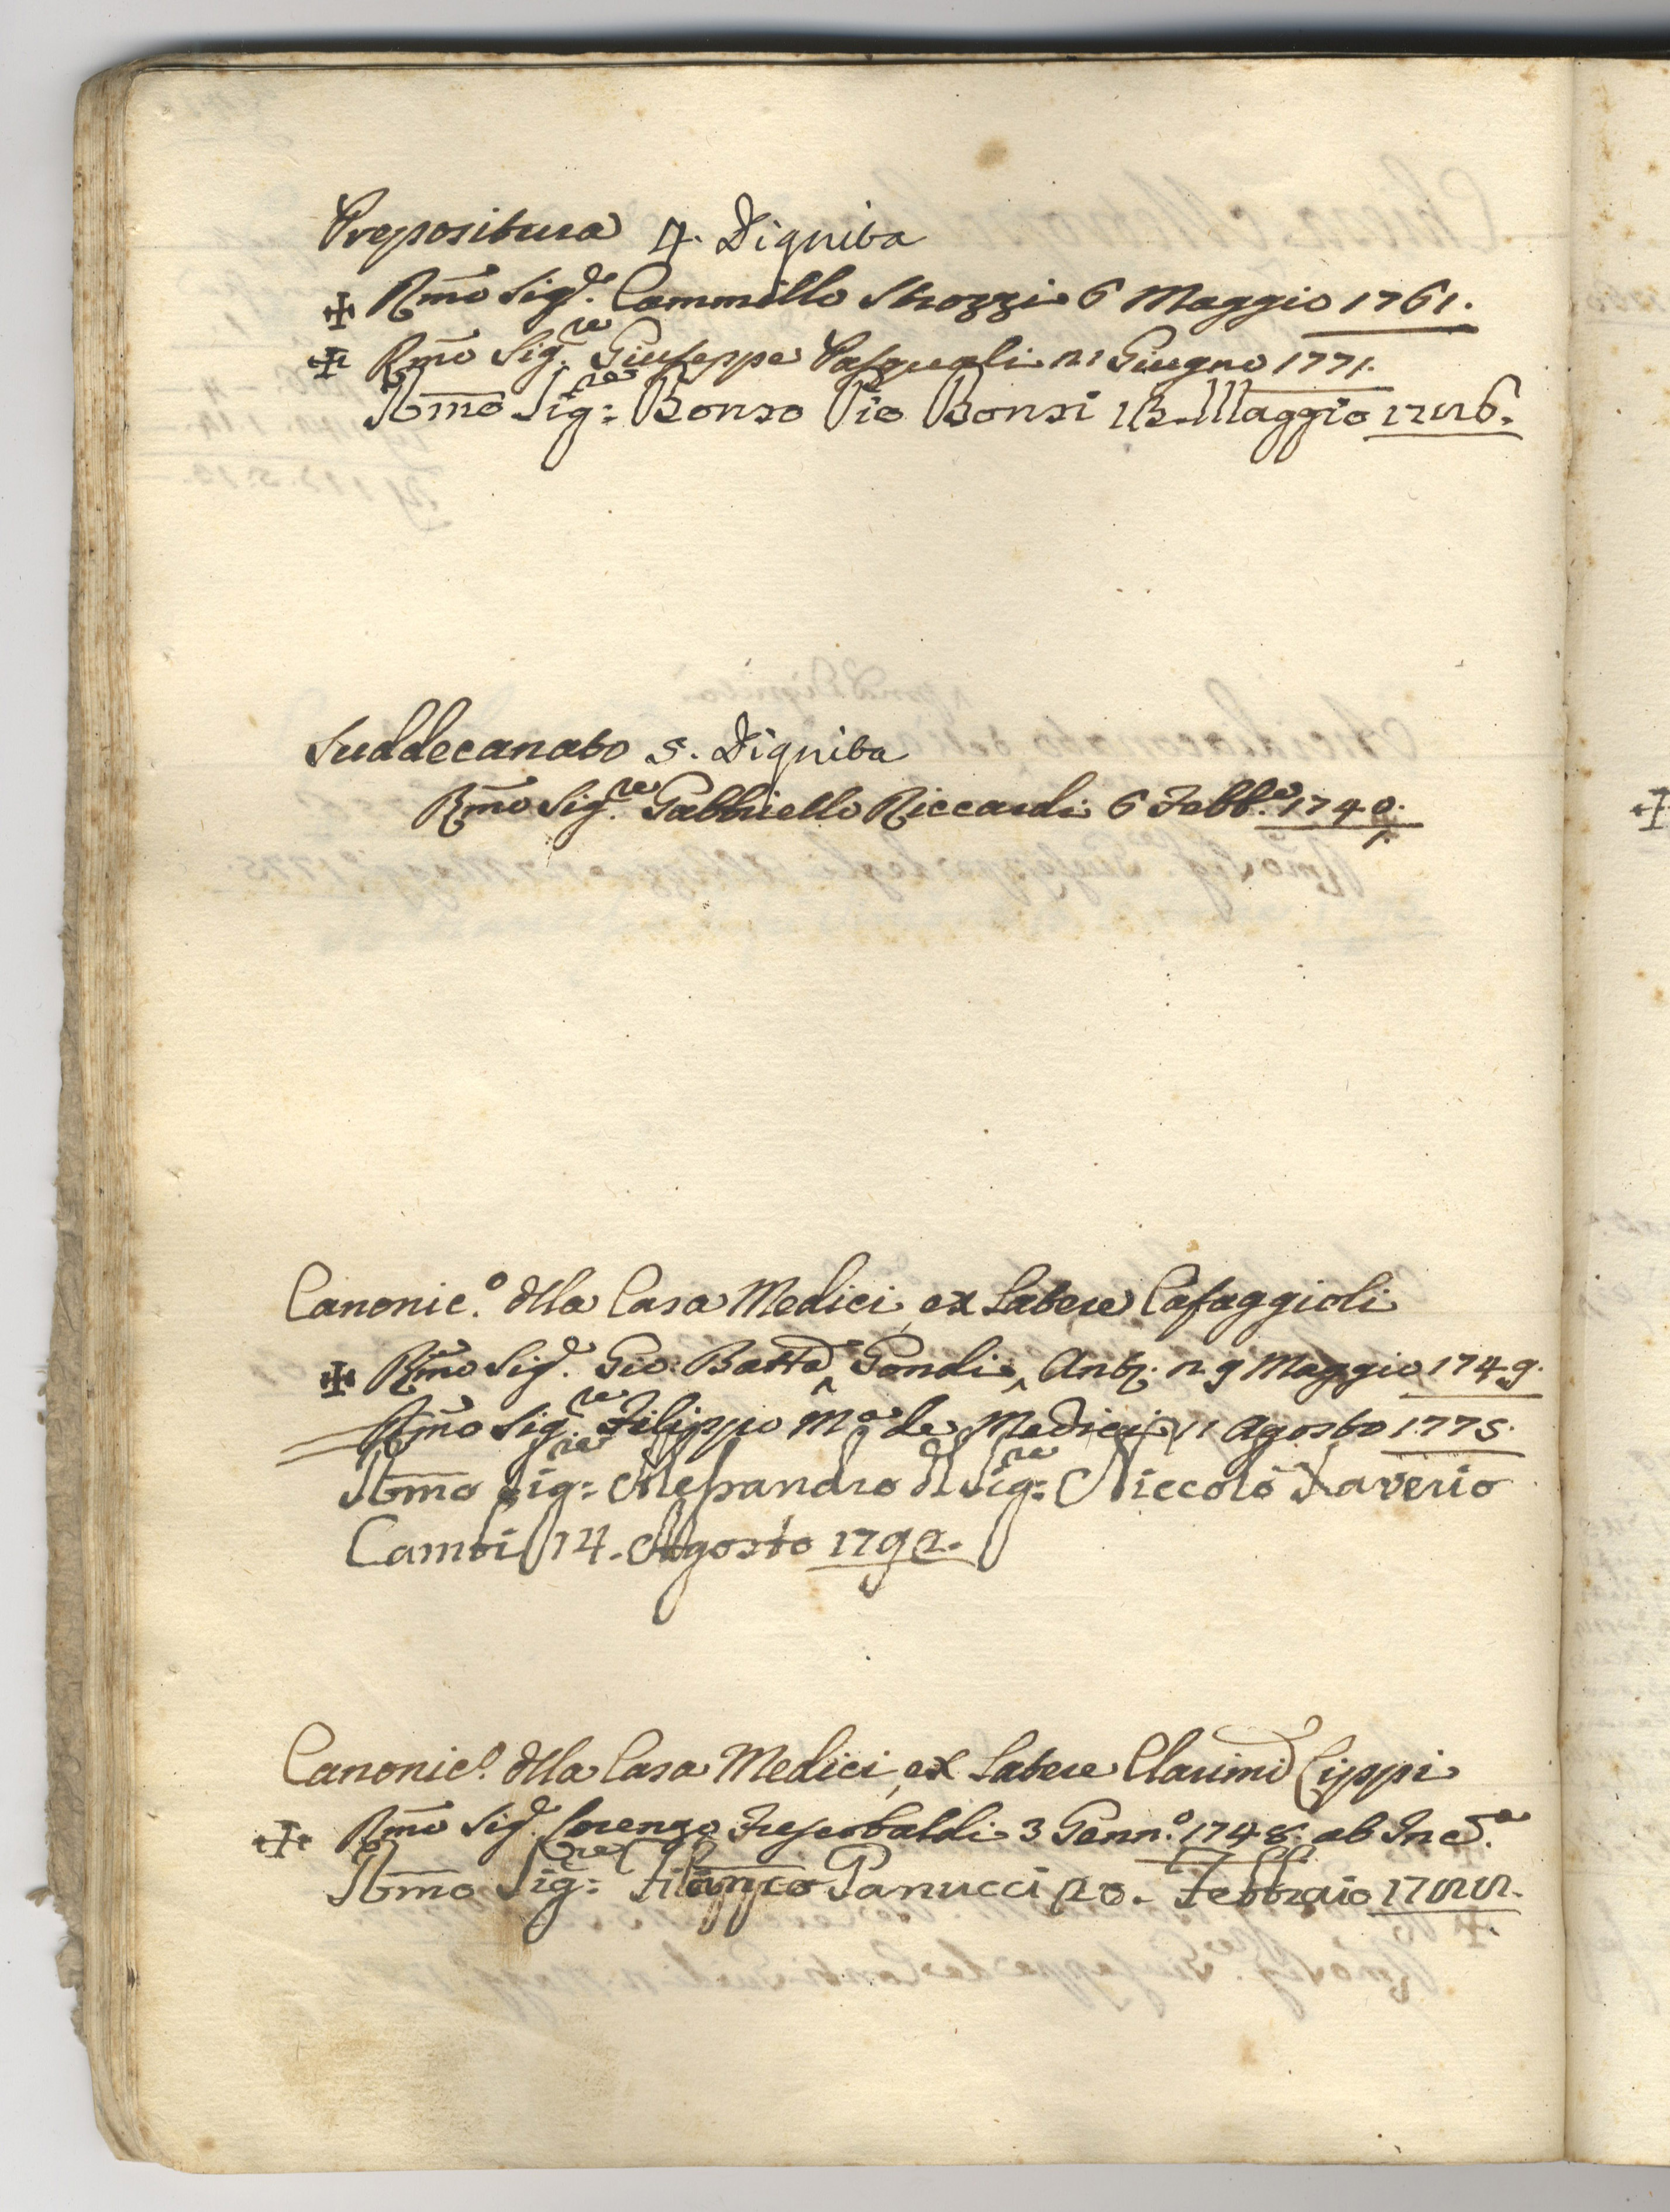 Prepositura 4. Dignita
✠ Rmo Sigr. Cammillo Strozzi 6 Maggio 1761.
✠ Rmo Sig.re Giuseppe Pasquali 21 Giugno 1771.
Rmo Sig:re Bonso Pio Bonsi Maggio
Suddecanato 5. Dignita
Rmo Sig.re Gabbriello Riccardi 6 Febb.o 1740.
Canonic.o dlla Casa Medici ex Latere Cafaggioli
✠ Rmo Sigr. Gio: Batta Gondi, 29 Maggio 1749.
Rmo Sig.re Filippo Ma de Medici 11 Agosto 1775.
Rmo Sig:re Alessandro dl Sig:re Niccolò Xaverio
Cambi 14. Agosto 1792.
Canonic.o dlla Casa Medici ex Latere Clarimi Cippi
✠ Rmo Sigr. Lorenzo Frescobaldi 3 Genn.o 1748. ab Inc.e
Rmo Sig:re Panucci 20. Febbraio